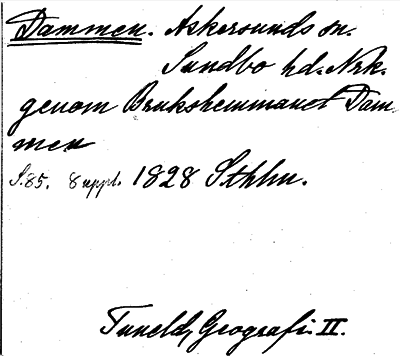 Dammen. Askersunds sn.
Sundbo hd. Nrk.
genom Brukshemmanet Dam
men
S.85. 8 uppl. 1828 Sthlm.
Tuneld, Geografi. II.